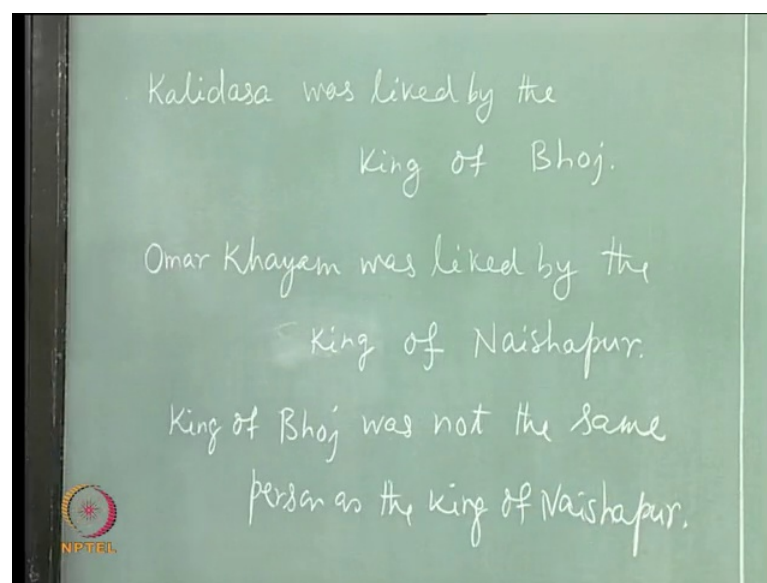 Kalidasa was liked by the
King of Bhoj.
Omar Khayam was liked by the
King of Naishapur.
King of Bhoj was not the same
person as the King of Naishapur.
NPTEL